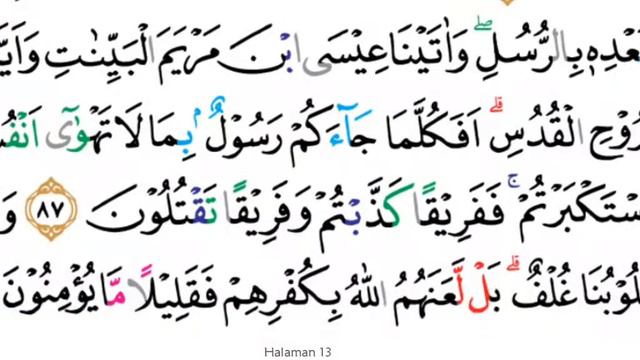 بِالرُّسُلِ ۖ وَاٰتَيْنَا عِيْسَى ابْنَ مَرْيَمَ الْبَيِّنٰتِ
الْقُدُسِ ۗ اَفَكُلَّمَا جَاۤءَكُمْ رَسُوْلٌۢ بِمَا لَا تَهْوٰٓى
فَفَرِيْقًا كَذَّبْتُمْ وَفَرِيْقًا تَقْتُلُوْنَ ٨٧
غُلْفٌ ۗ بَلْ لَّعَنَهُمُ اللّٰهُ بِكُفْرِهِمْ فَقَلِيْلًا مَّا يُؤْمِنُوْنَ
Halaman 13